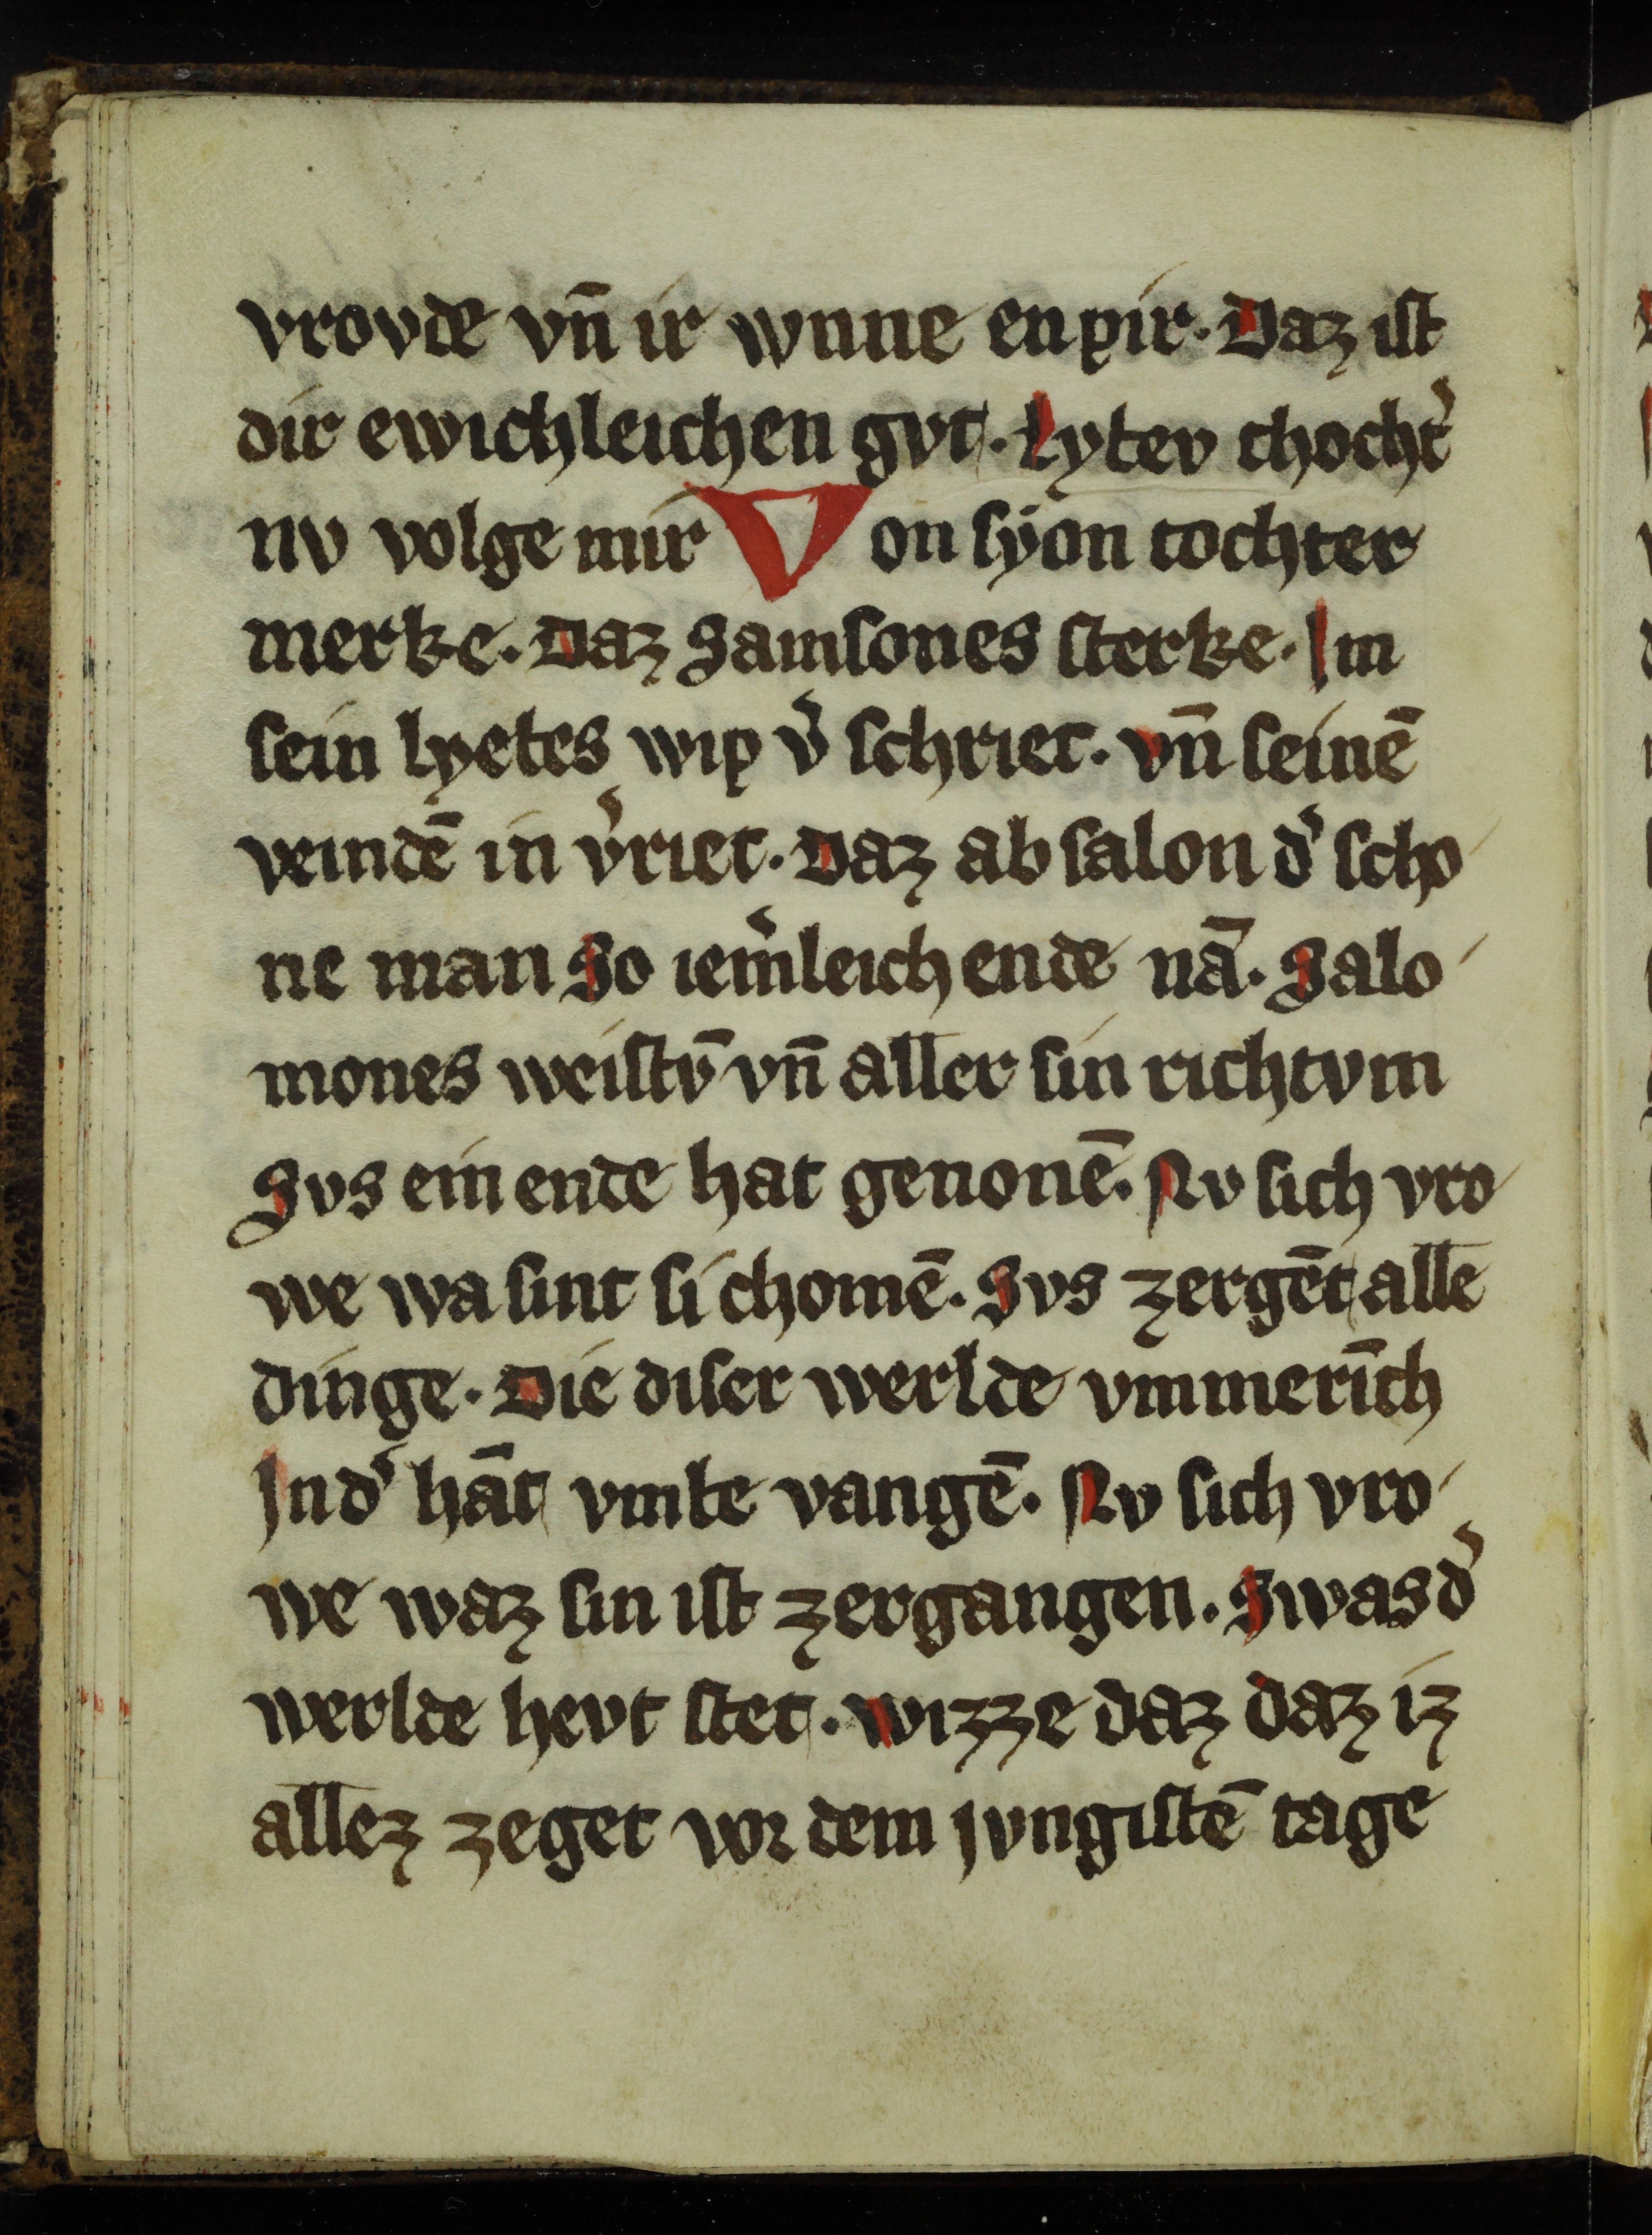 vrovde vn̄ ir wnne enpir. Daz ist
dir ewichleichen gvt. Lybev thocht͛
nv volge mir Von syon tochter
merke. Daz Samsones sterke. Im
sein lyebes wip v͛ schriet. vn̄ seinē
veindē in v͛riet. Daz absalon d͛ scho
ne man So iem͛leich ende nā. Salo
mones weistv̄ vn̄ aller sin richtvm
Svs ein ende hat genonē. Nv sich vro
we wa sint si chomē. Svs zergēt alle
dinge. Die diser werlde vmmerīch
Ind͛ hāt vmbe vangē. Nv sich vro
we waz sin ist zergangen. Swas d͛
werlde hevt stet. wizze daz daz iz
allez zeget vor dem jvngistē tage